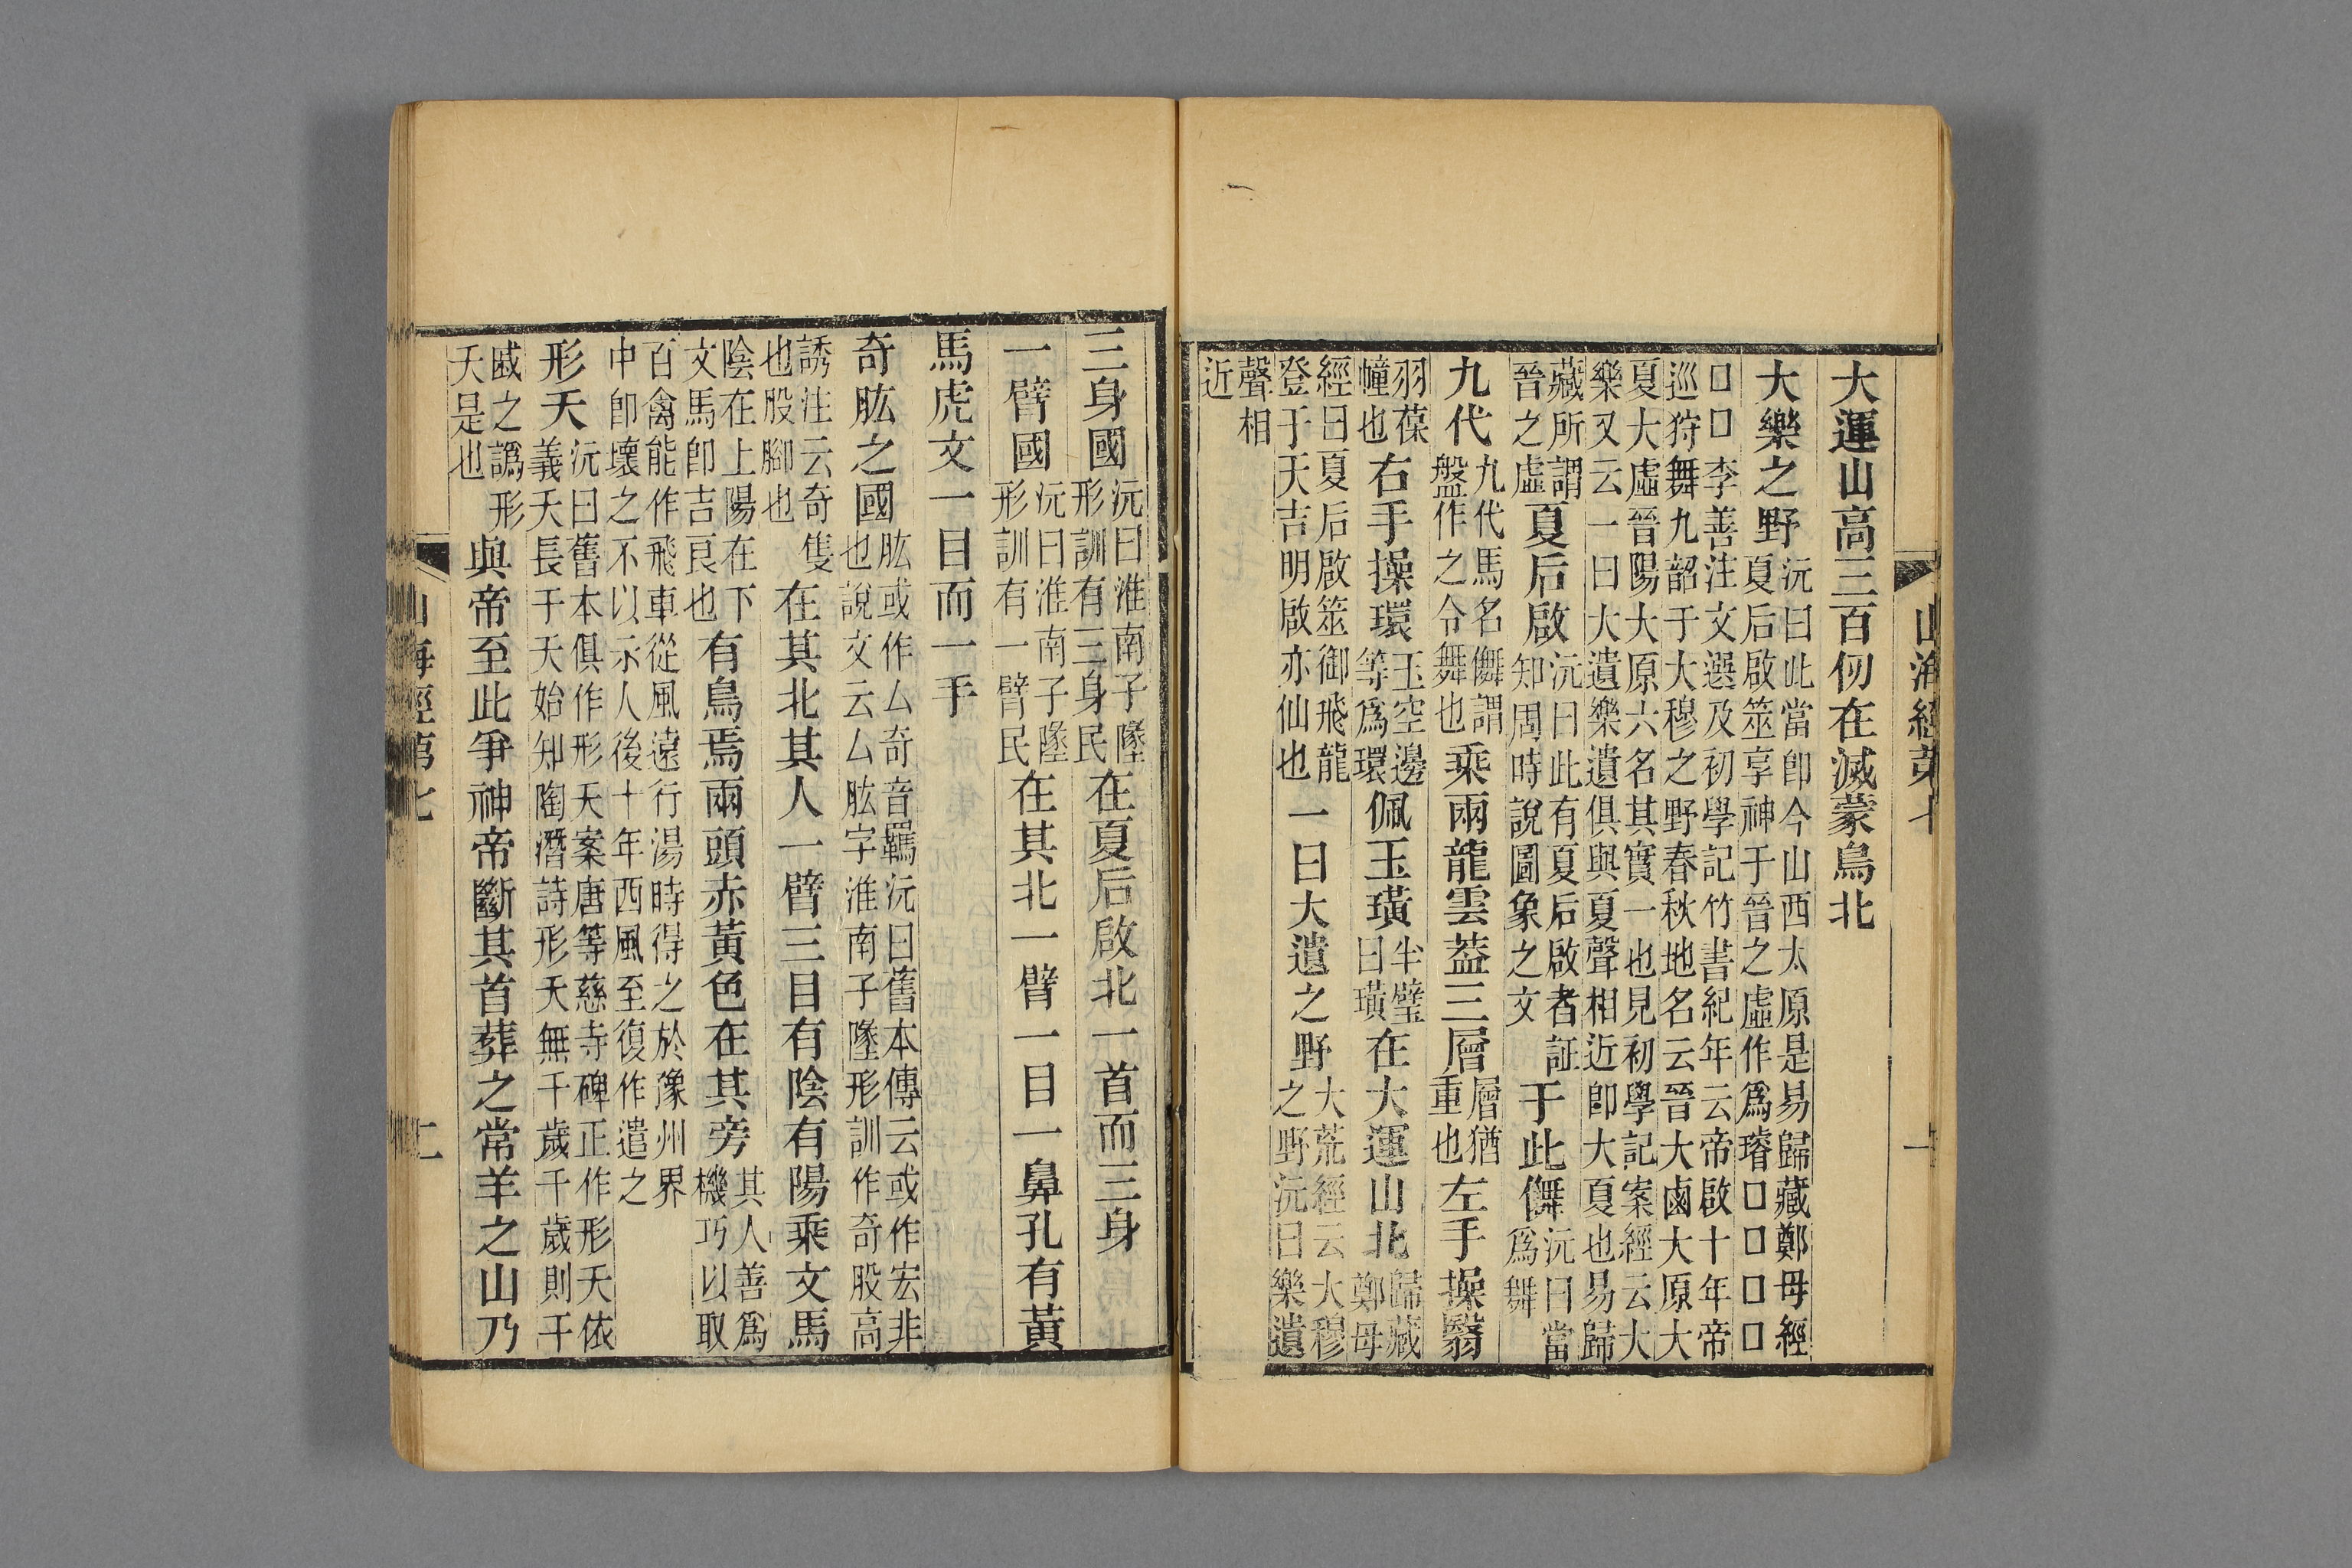 山海經第七 一
大運山高三百仞在滅蒙鳥北
大樂之野沅曰此當卽今山西太原是易歸藏鄭母經夏后啟筮享神于晉之虛作爲璿□□□□
□□李善注文選及初學記竹書紀年云帝啟十年帝巡狩舞九韶于大穆之野春秋地名云晉大鹵大原大
夏大虛晉陽大原六名其實一也見初學記案經云大樂又云一曰大遺樂遺俱與夏聲相近卽大夏也易歸
藏所謂晉之虛夏后啟沅曰此有夏后啟者証知周時說圖象之文于此儛沅曰當爲舞
九代九代馬名儛謂盤作之令舞也乘兩龍雲葢三層層猶重也左手操翳
羽葆幢也右手操環玉空邊等爲環佩玉璜半璧曰璜在大運山北歸藏鄭母
經曰夏后啟筮御飛龍登于天吉明啟亦仙也一曰大遺之野大荒經云大穆之野沅曰樂遺
聲相近
三身國沅曰淮南子墬形訓有三身民在夏后啟北一首而三身
一臂國沅曰淮南子墬形訓有一臂民在其北一臂一目一鼻孔有黃
馬虎文一目而一手
奇肱之國肱或作厶奇音羈沅曰舊本傳云或作宏非也說文云厶肱字淮南子墬形訓作奇股高
誘注云奇隻也股腳也在其北其人一臂三目有陰有陽乘文馬
陰在上陽在下文馬卽吉良也有鳥焉兩頭赤黃色在其旁其人善爲機巧以取
百禽能作飛車從風遠行湯時得之於豫州界中卽壞之不以示人後十年西風至復作遣之
形天沅曰舊本俱作形天案唐等慈寺碑正作形夭依義夭長于天始知陶潛詩形夭無千歲千歲則干
戚之譌形夭是也與帝至此爭神帝斷其首葬之常羊之山乃
山海經第七 二